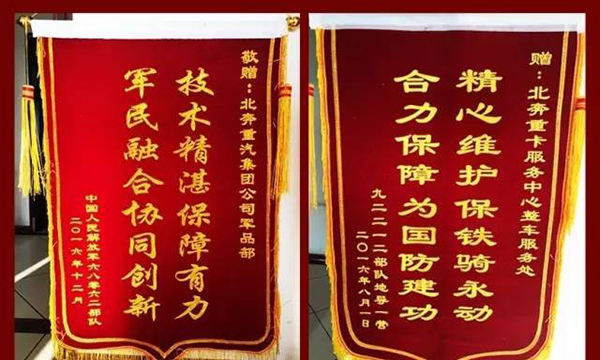 敬赠：北奔重汽集团公司军品部
技术精湛保障有力
军民融合协同创新
中国人民解放军六八零六二部队
二〇一六年十二月
赠：北奔重卡服务中心整车服务处
精心维护保铁骑永动
合力保障为国防建功
九二二一二部队地导一营
二〇一六年八月一日